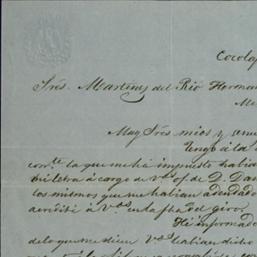 Cocolap
Sres. Martinez del Rio Herman
Me
Muy Sres mios y ami
Tengo á la
corrte. la que me há impuesto habian
bi letra á cargo de Vds. of. de D. Da
los mismos que me habian adeudado
acredité á Vds. en la fha. del giro.
Hé informado
de lo que me dicen Vds. habian dicho